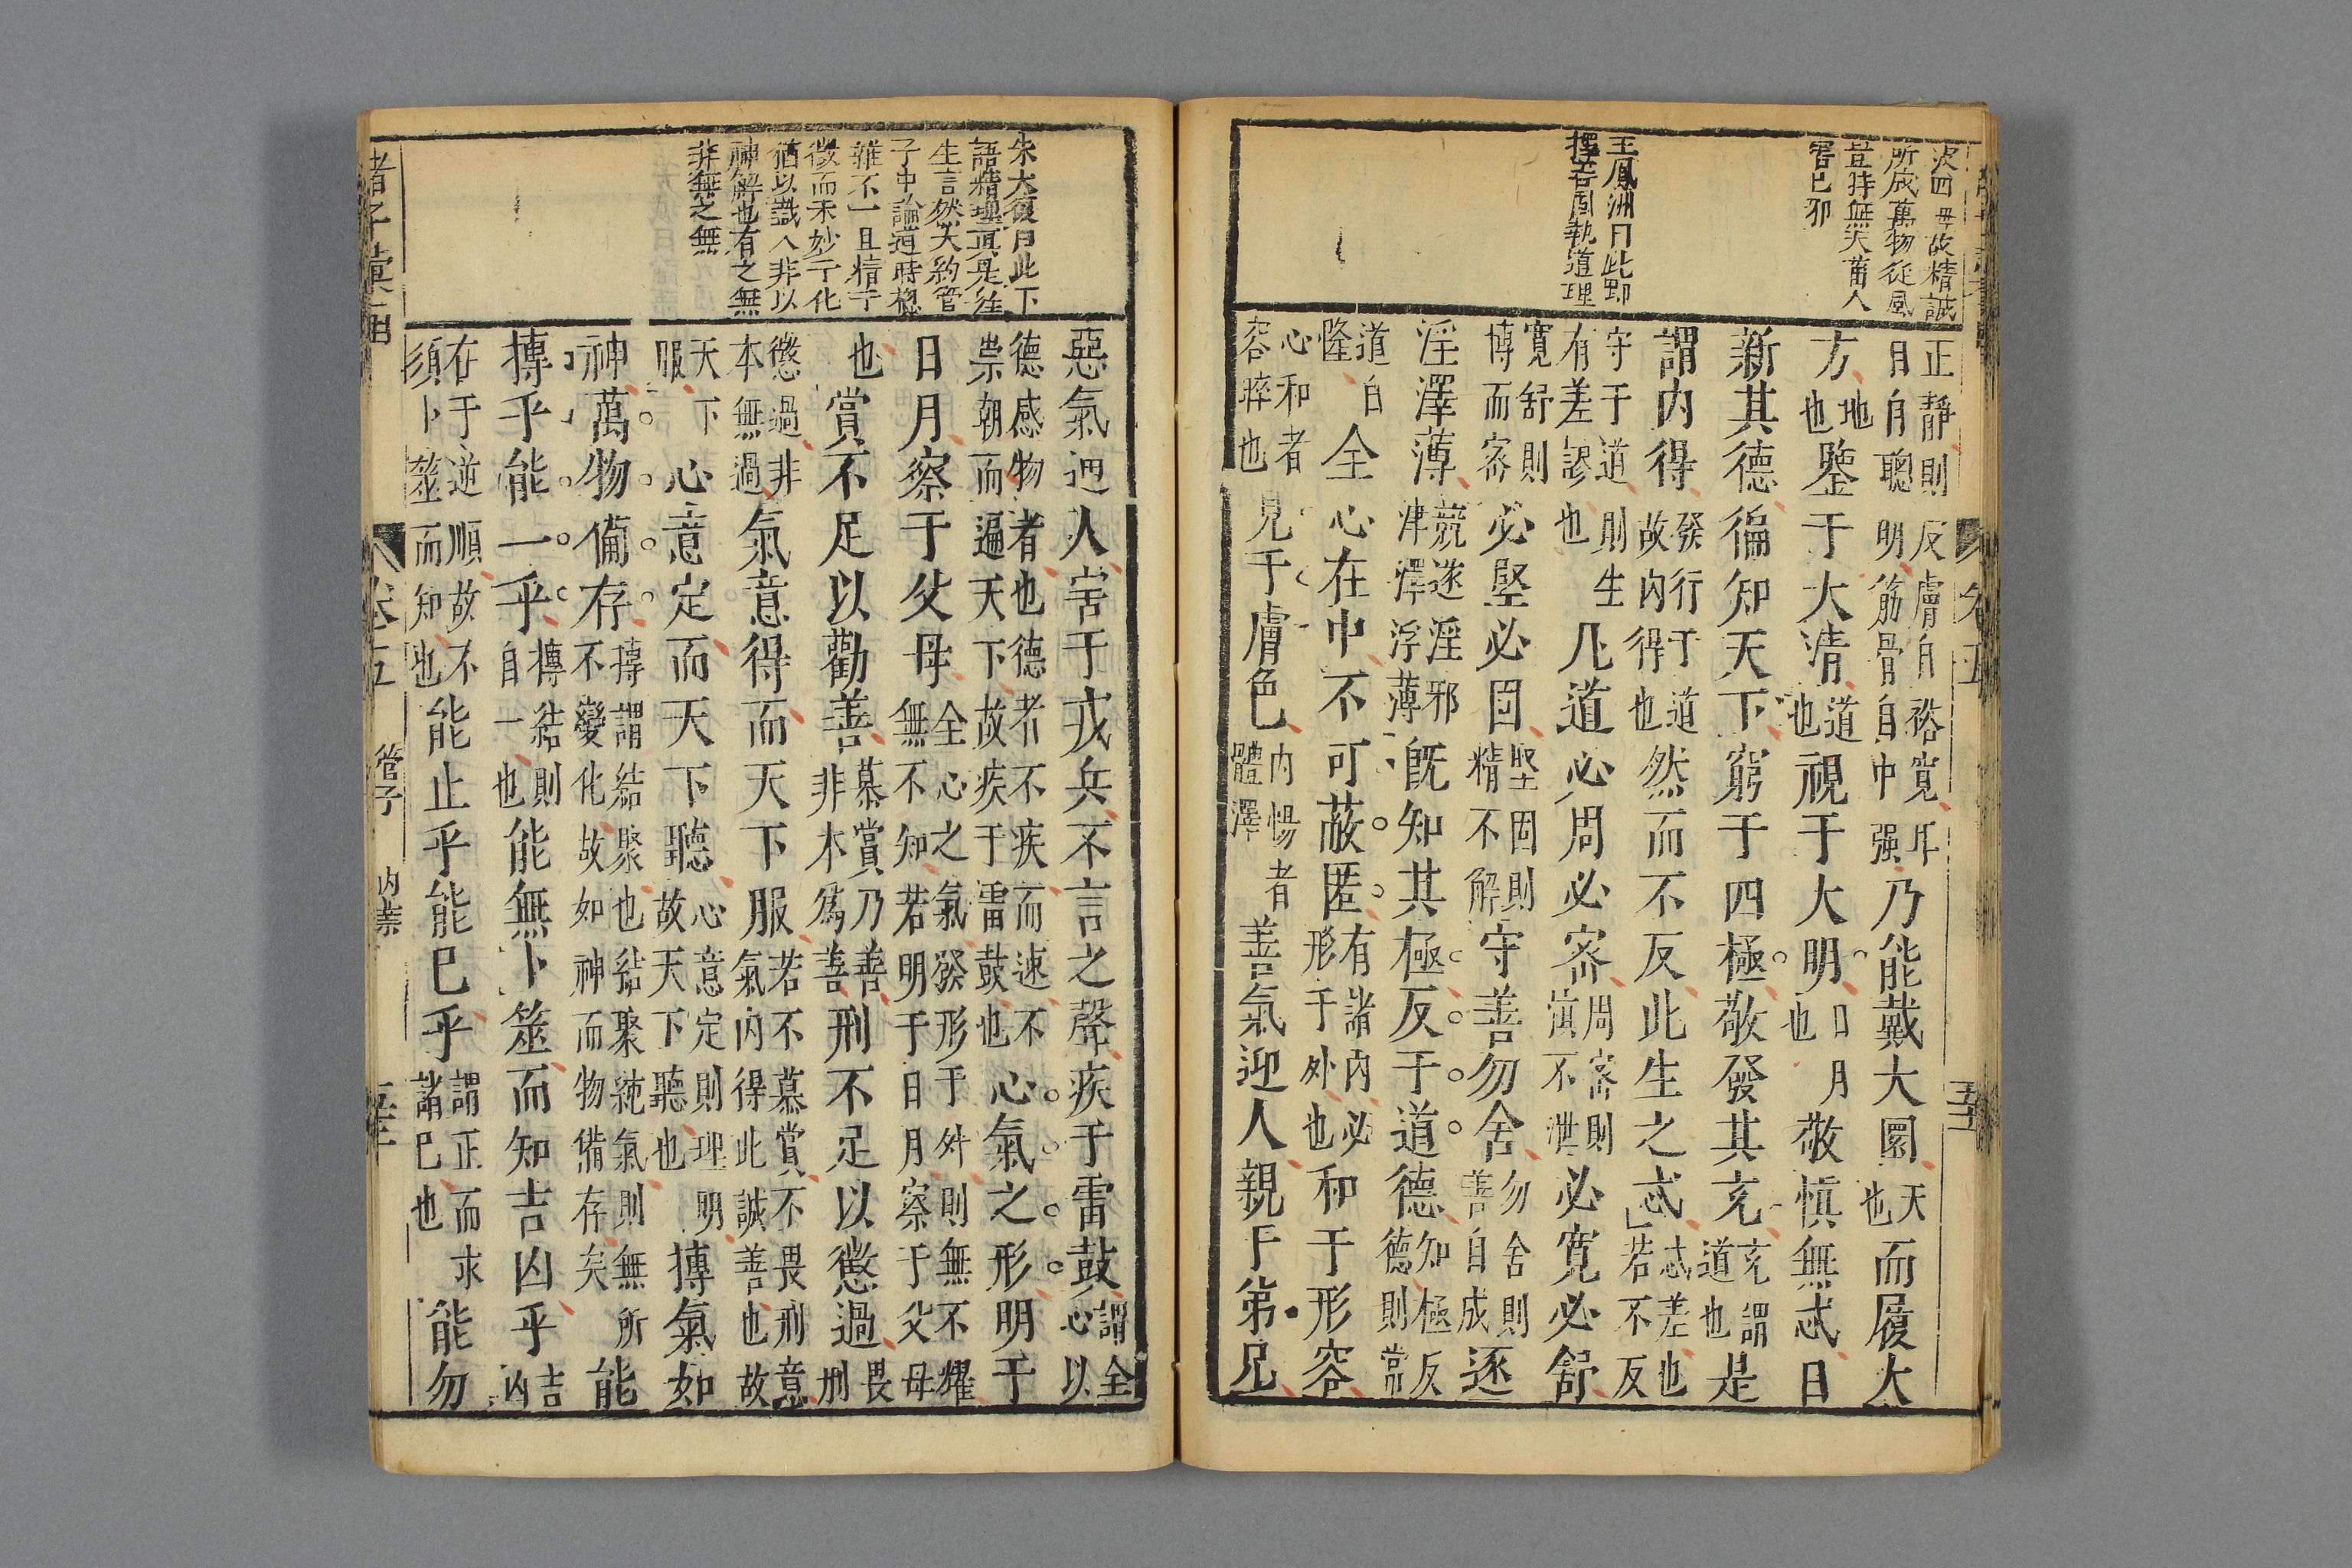 次四毋故精誠
所成萬物從風
豈持無天菑人
害已邪
王鳳洲曰此即
擇善固執道理
正靜則反膚自裕寬耳目自聰明筋骨自中强乃能戴大圜天也而履大
方地也鑒于大清道也視于大明日月也敬慎無忒日
新其德徧知天下窮于四極敬發其充充謂道也是
謂內得發行于道故內得也然而不反此生之忒忒差也若不反
守于道則生有差謬也凡道必周必密周密則慎不泄必寬必舒
寬舒則博而密必堅必固堅固則精不解守善勿舍勿舍則善自成逐
淫澤薄競逐淫邪津澤浮薄旣知其極反于道德知極反德則常
道自隆全心在中不可蔽匿有諸內必形于外也和于形容
心和者容睟也見于膚色內暢者體澤善氣迎人親于弟兄
朱大復曰此下
語精理真是徃
生言然大約管
子中論道時概
雜不一且精于
微而未妙于化
猶以識人非以
神解也有之無
非無之無
惡氣迎人害于戎兵不言之聲疾于雷鼓謂全心以
德感物者也德者不疾而速不崇朝而遍天下故疾于雷鼓也心氣之形明于
日月察于父母全心之氣發形于外則無不耀無不知若明于日月察于父母
也賞不足以勸善慕賞乃善非本爲善刑不足以懲過畏刑
懲過非本無過氣意得而天下服若不慕賞不畏刑意氣內得此誠善也故
天下服心意定而天下聽心意定則理明故天下聽也摶氣如
神萬物備存摶謂結聚也結聚純氣則無所不變化故如神而物備存矣能
摶乎能一乎摶結則自一也能無卜筮而知吉凶乎吉凶
在于逆順故不須卜筮而知也能止乎能已乎謂正而求諸已也能勿
諸子彙函 卷五 管子 內業